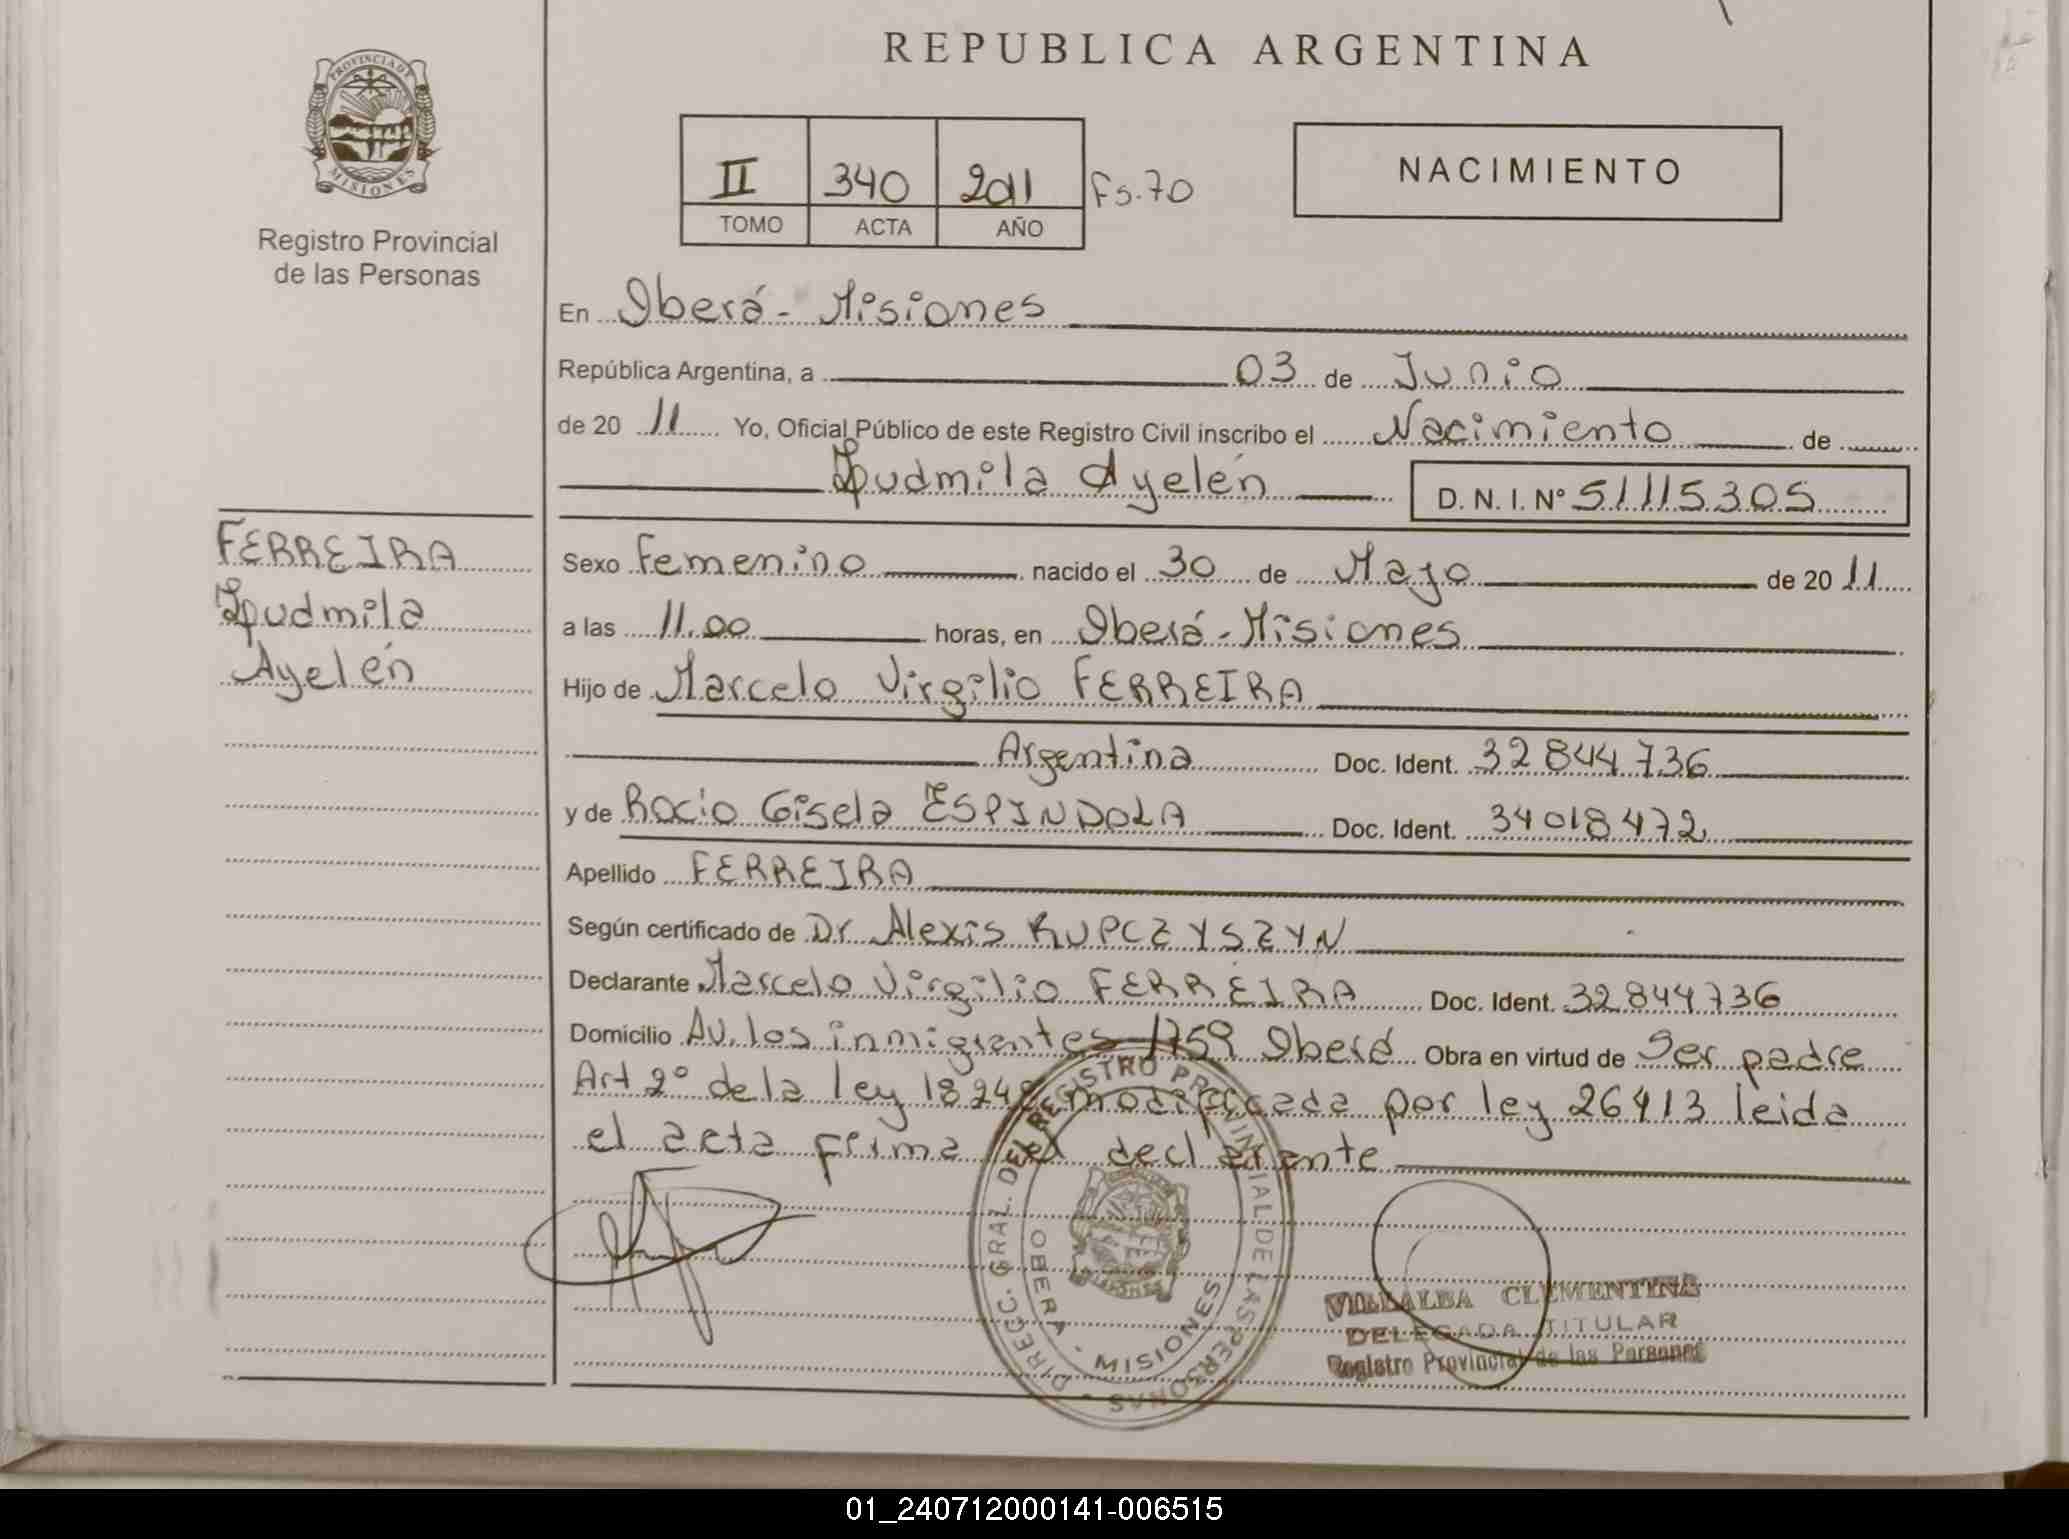 REPUBLICA ARGENTINA
PROVINCIA DE MISIONES
Registro Provincial
de las Personas
II 340 2011 Fs.70
TOMO ACTA AÑO
NACIMIENTO
En Oberá - Misiones
República Argentina, a 03 de Junio
de 20 11 Yo, Oficial Público de este Registro Civil inscribo el Nacimiento de
Ludmila Ayelén D. N. I. Nº 51115305
FERREIRA
Ludmila
Ayelén
Sexo Femenino nacido el 30 de Mayo de 20 11
a las 11.00 horas, en Oberá - Misiones
Hijo de Marcelo Virgilio FERREIRA
Argentina Doc. Ident. 32844736
y de Rocio Gisela ESPINDOLA Doc. Ident. 34018472
Apellido FERREIRA
Según certificado de Dr Alexis RUPCZYSZYN
Declarante Marcelo Virgilio FERREIRA Doc. Ident. 32844736
Domicilio Av. los inmigrantes 1759 Oberá Obra en virtud de Ser padre
Art 2º de la ley 18248 modificada por ley 26413 leida
el acta firma el declarante
DIRECC. GRAL. DEL REGISTRO PROVINCIAL DE LAS PERSONAS
OBERA - MISIONES
VILLALBA CLEMENTINA
DELEGADA TITULAR
Registro Provincial de las Personas
01_240712000141-006515